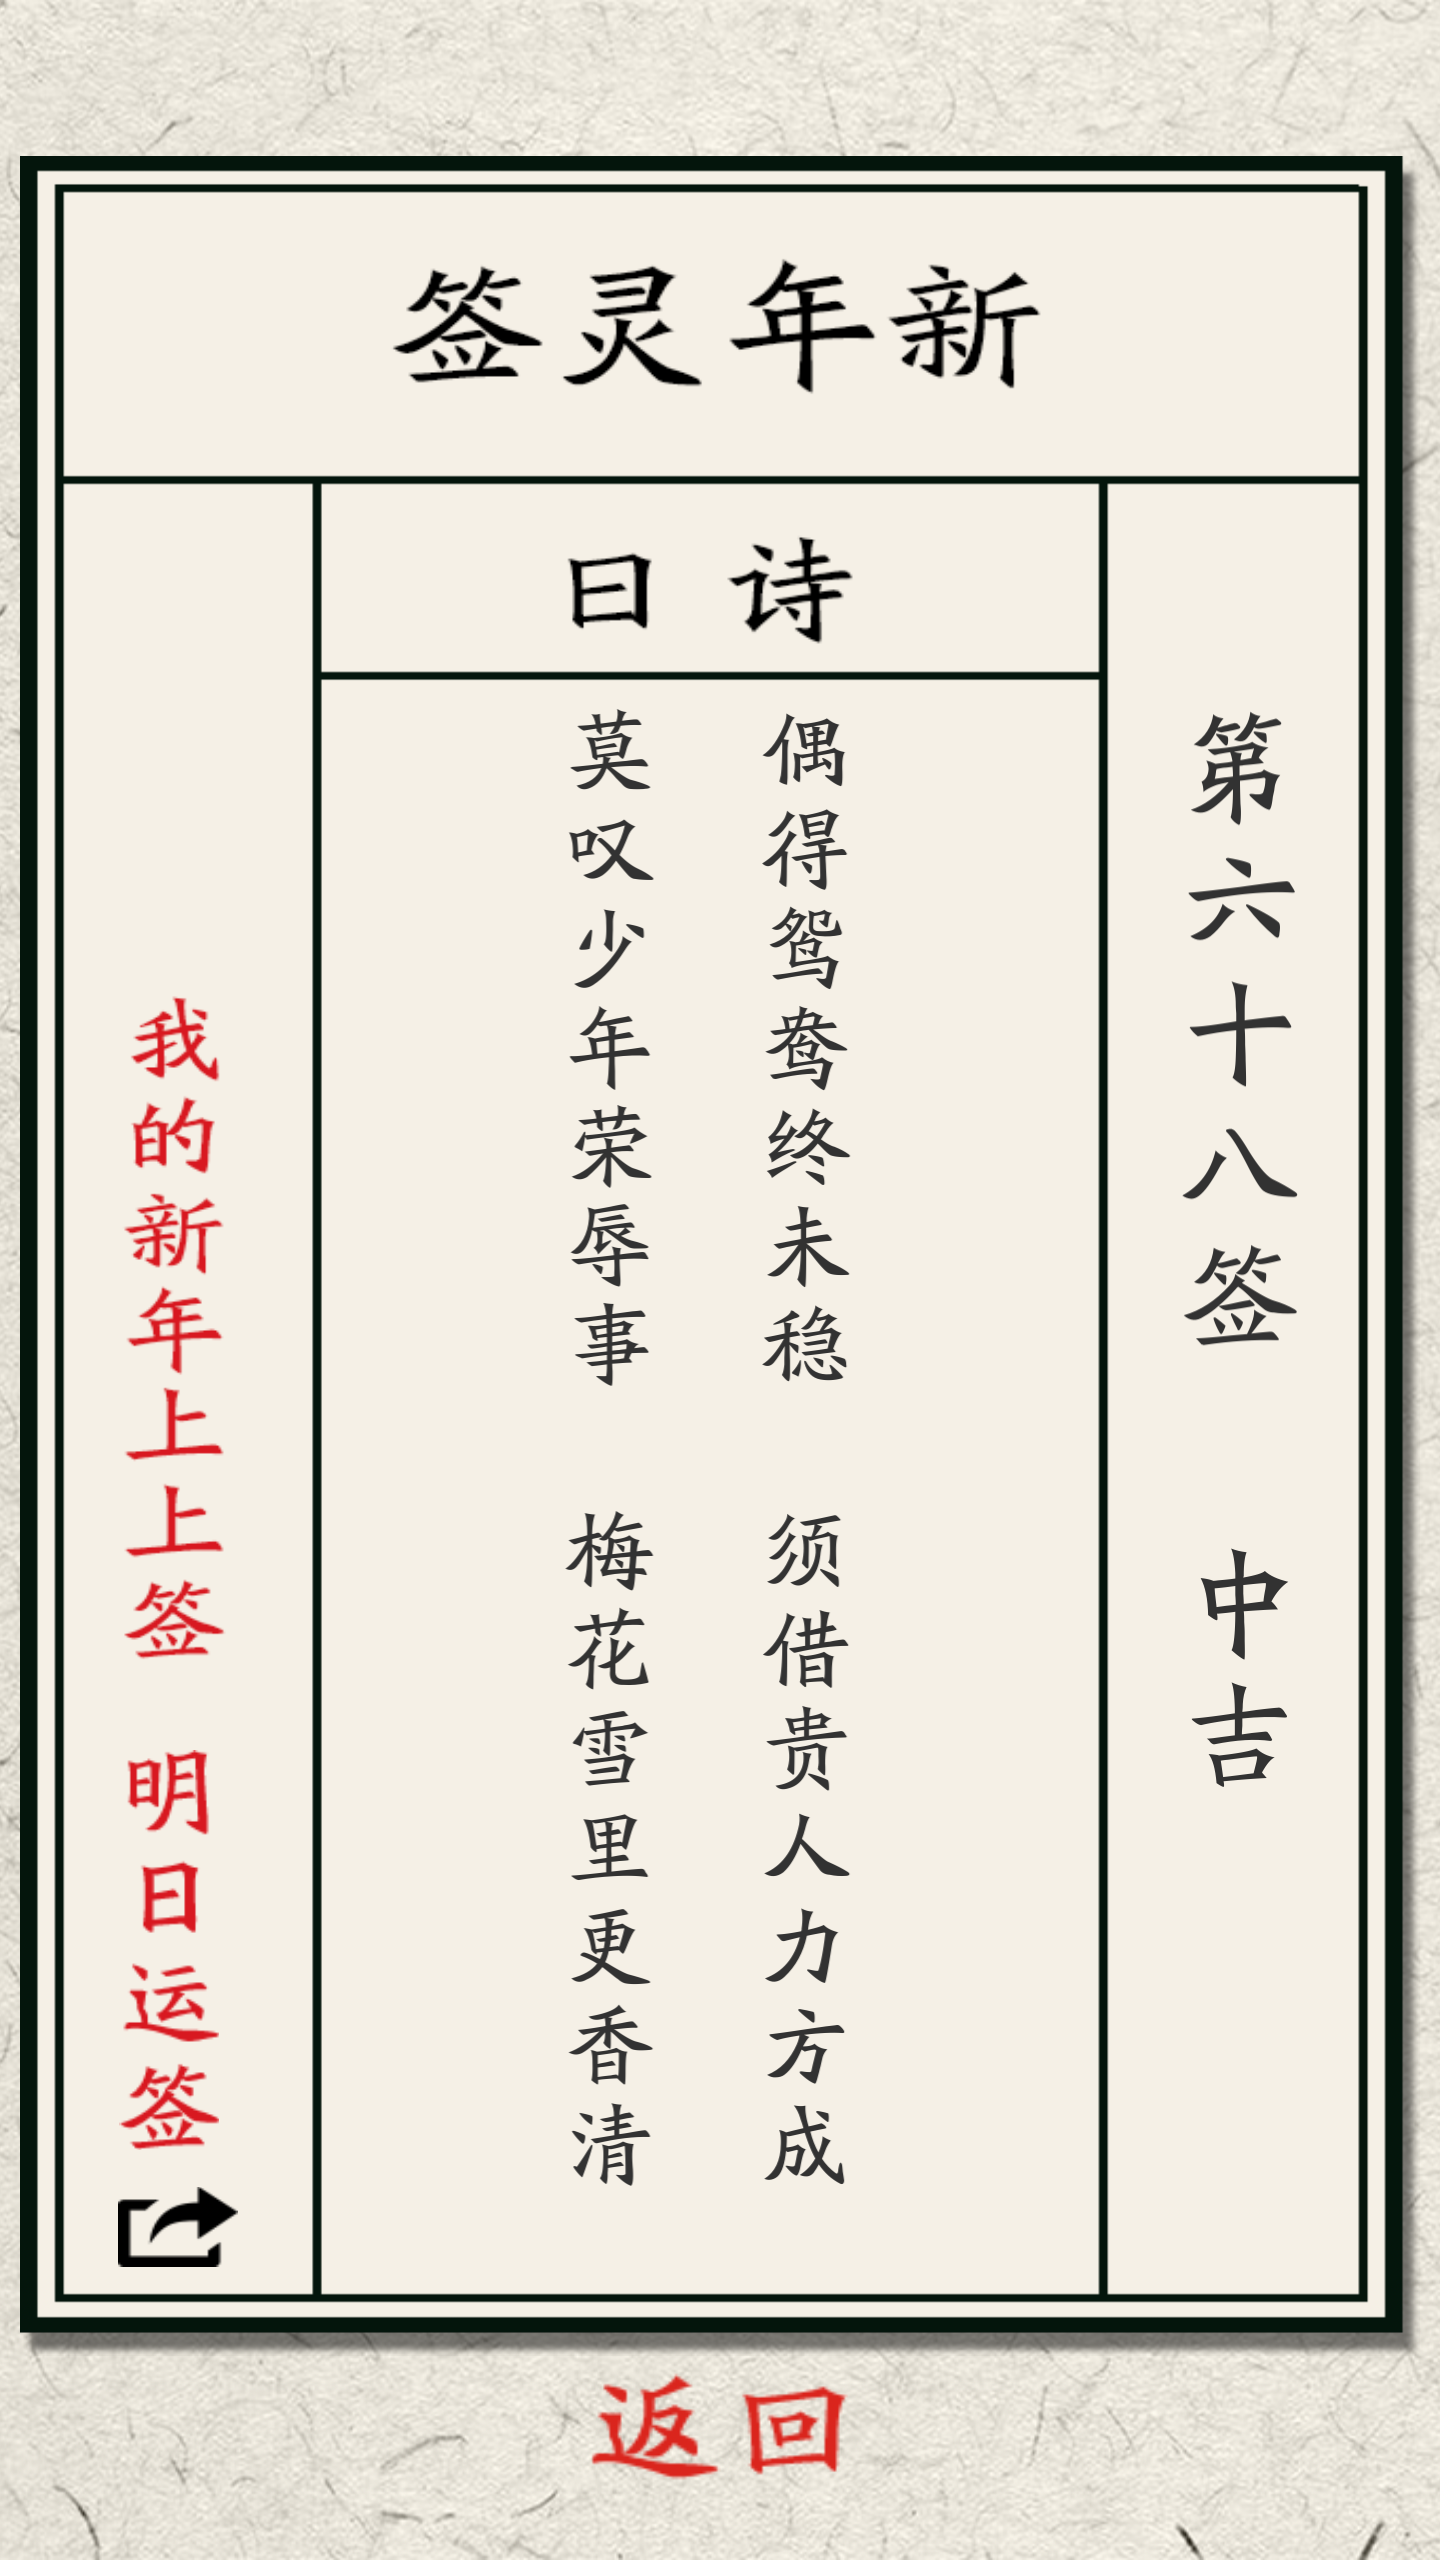 新年灵签
诗曰
第六十八签 中吉
偶得鸳鸯终未稳 须借贵人力方成
莫叹少年荣辱事 梅花雪里更香清
我的新年上上签 明日运签
返回